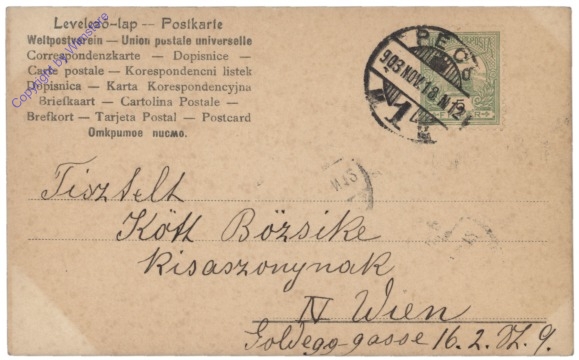 Levelező-lap — Postkarte
Weltpostverein — Union postale universelle
Correspondenzkarte — Dopisnice —
Carte postale — Korespondencni listek
Dopisnica — Karta Korespondencyjna
Briefkaart — Cartolina Postale —
Brefkort — Tarjeta Postal — Postcard
Открытое письмо.
Copyright by Wienstore
PÉCS
903 NOV. 18. N12
1
Tisztelt
Kött Bözsike
kisaszonynak
IV Wien
Goldegg-gasse 16. 2. St. 9.